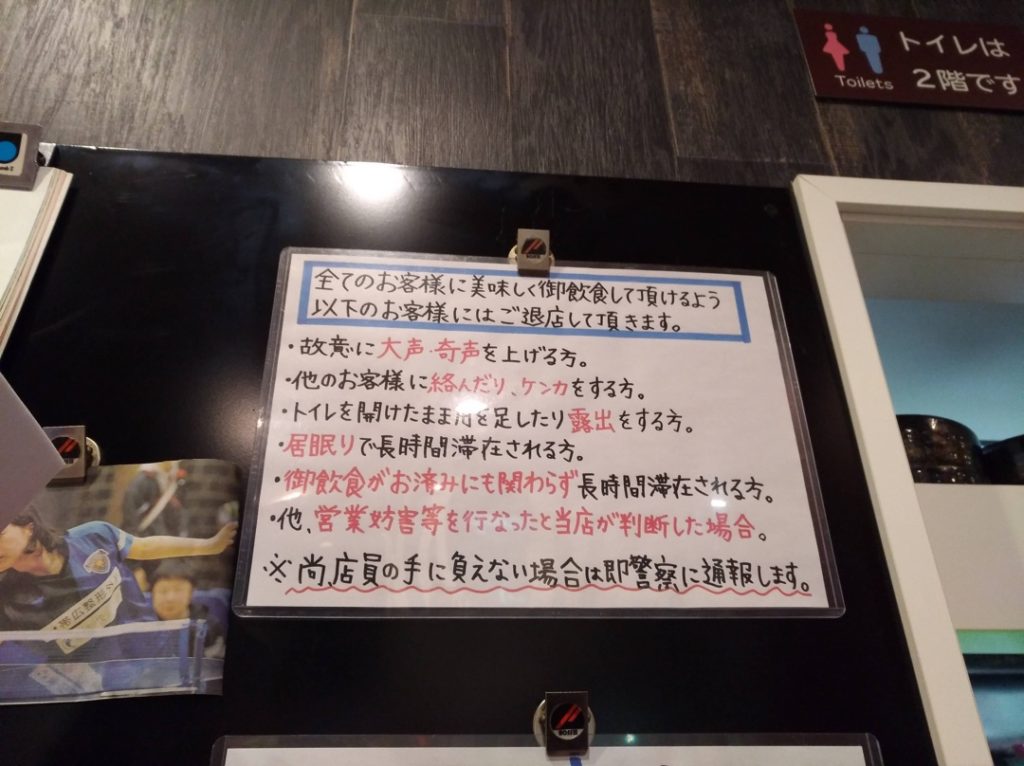 トイレは
Toilets
2階です
全てのお客様に美味しく御飲食して頂けるよう
以下のお客様にはご退店して頂きます。
・故意に大声・奇声を上げる方。
・他のお客様に絡んだり、ケンカをする方。
・トイレを開けたまま用を足したり露出をする方。
・居眠りで長時間滞在される方。
・御飲食がお済みにも関わらず長時間滞在される方。
・他、営業妨害等を行なったと当店が判断した場合。
※尚、店員の手に負えない場合は即警察に通報します。